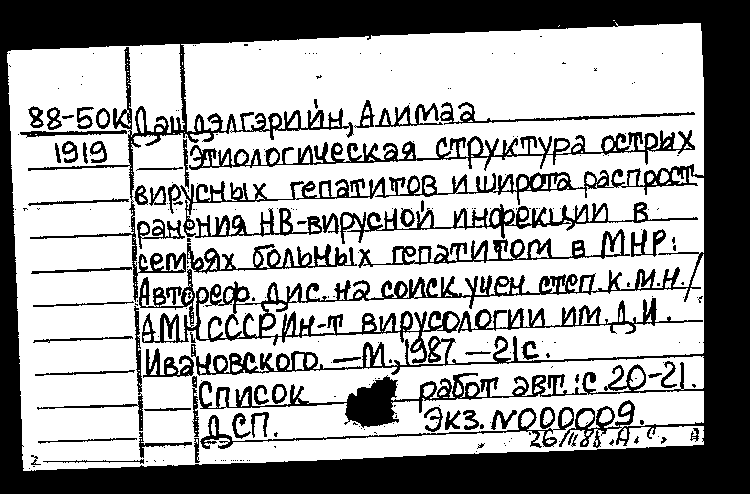 88-50К Дашдэлгэрийн, Алимаа
1919 Этиологическая структура острых
вирусных гепатитов и широта распрост-
ранения НВ-вирусной инфекции в
семьях больных гепатитом в МНР:
Автореф. дис. на соиск. учен. степ. к.м.н./
АМН СССР, Ин-т вирусологии им. Д.И.
Ивановского. —М., 1987. —21с.
Список работ авт.: с. 20-21.
ДСП. Экз. N000009.
А.С.
2